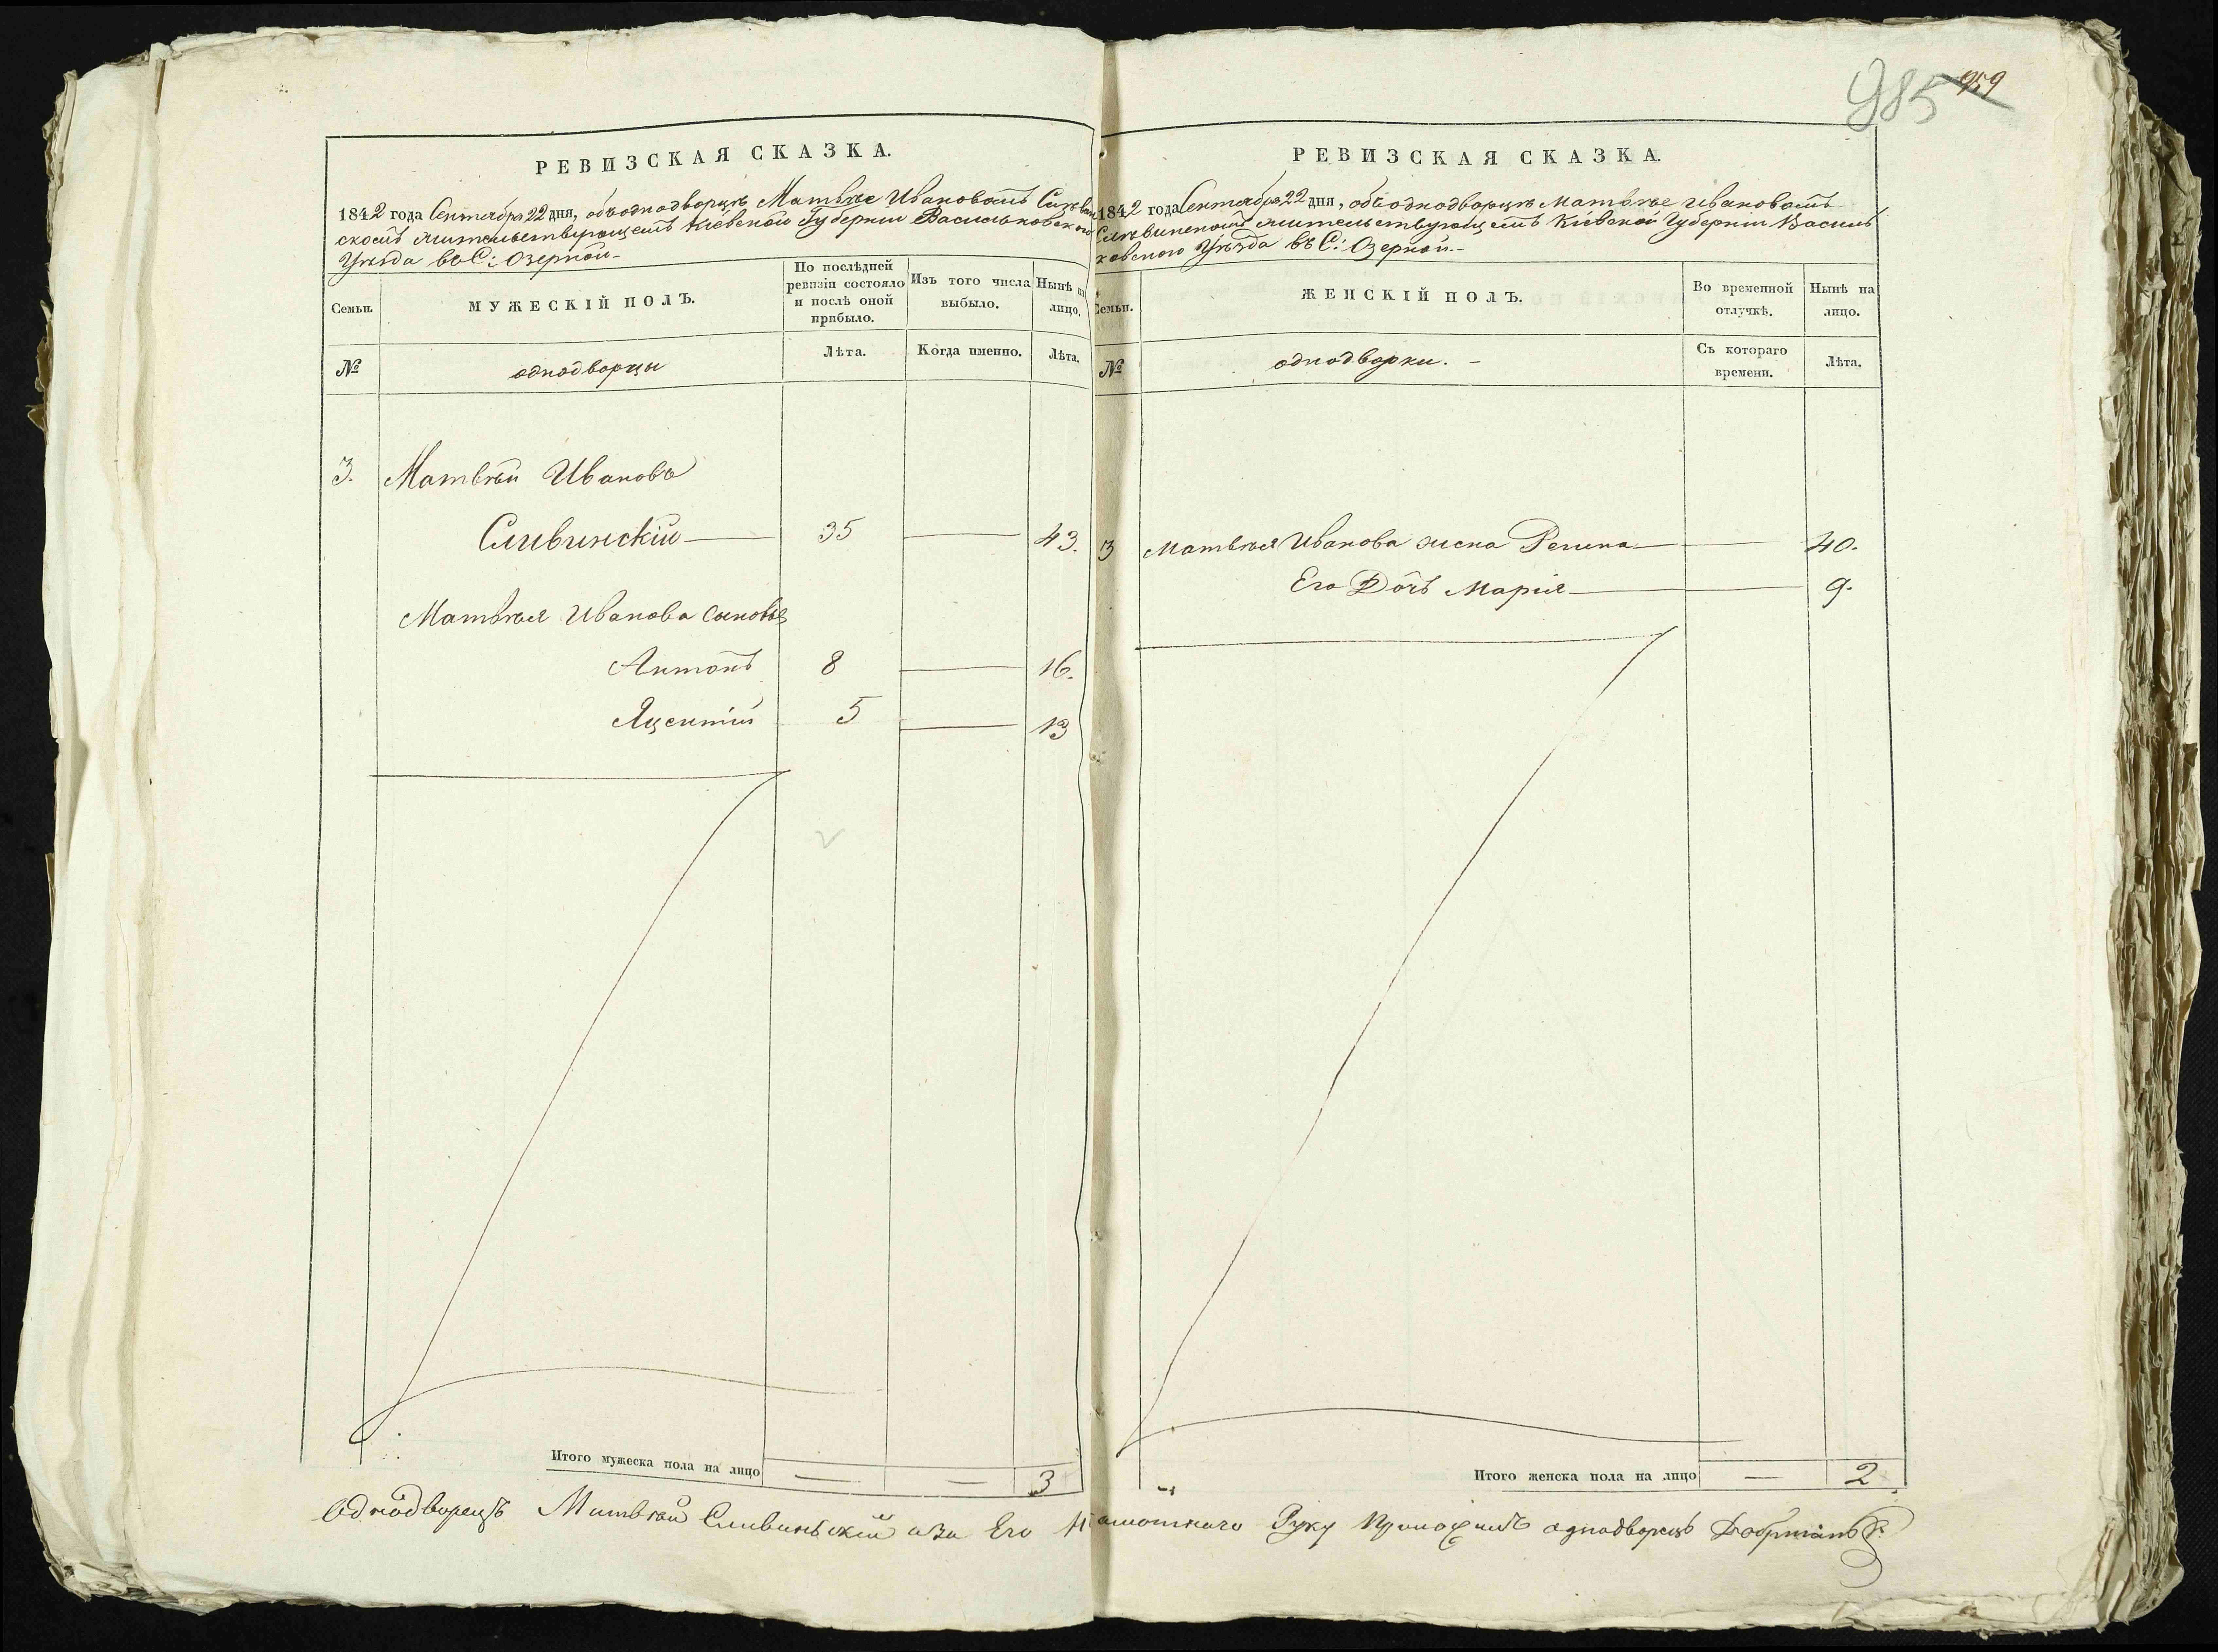 985 959
РЕВИЗСКАЯ СКАЗКА.
1842 года Сентября 22 дня, объ однодворцѣ Матвѣе Ивановомъ Сливин
скомъ жительствующемъ Кіевской Губерніи Васильковского
Уѣзда въ С: Озерной.
Семьи.
МУЖЕСКІЙ ПОЛЪ.
По послѣдней ревизіи состояло и послѣ оной прибыло.
Изъ того числа выбыло.
Нынѣ на лицо.
№
однодворцы
Лѣта.
Когда именно.
Лѣта.
3. Матвѣй Ивановъ
Сливинскій 35 — 43.
Матвѣя Иванова сыновья
Антонъ 8 — 16.
Яцентій 5 — 13
Итого мужеска пола на лицо — — 3
РЕВИЗСКАЯ СКАЗКА.
1842 года Сентября 22 дня, объ однодворцѣ Матвѣе Ивановомъ
Сливинскомъ жительствующемъ Кіевской Губерніи Василь
ковского Уѣзда въ С: Озерной.-
Семьи.
ЖЕНСКІЙ ПОЛЪ.
Во временной отлучкѣ.
Нынѣ на лицо.
№
однодворки. -
Съ котораго времени.
Лѣта.
3 Матвѣя Иванова жена Регина — 40.
Его Дочь Марія — 9.
Итого женска пола на лицо — 2
Однодворецъ Матвѣй Сливиньскій а за Его Руку однодворецъ